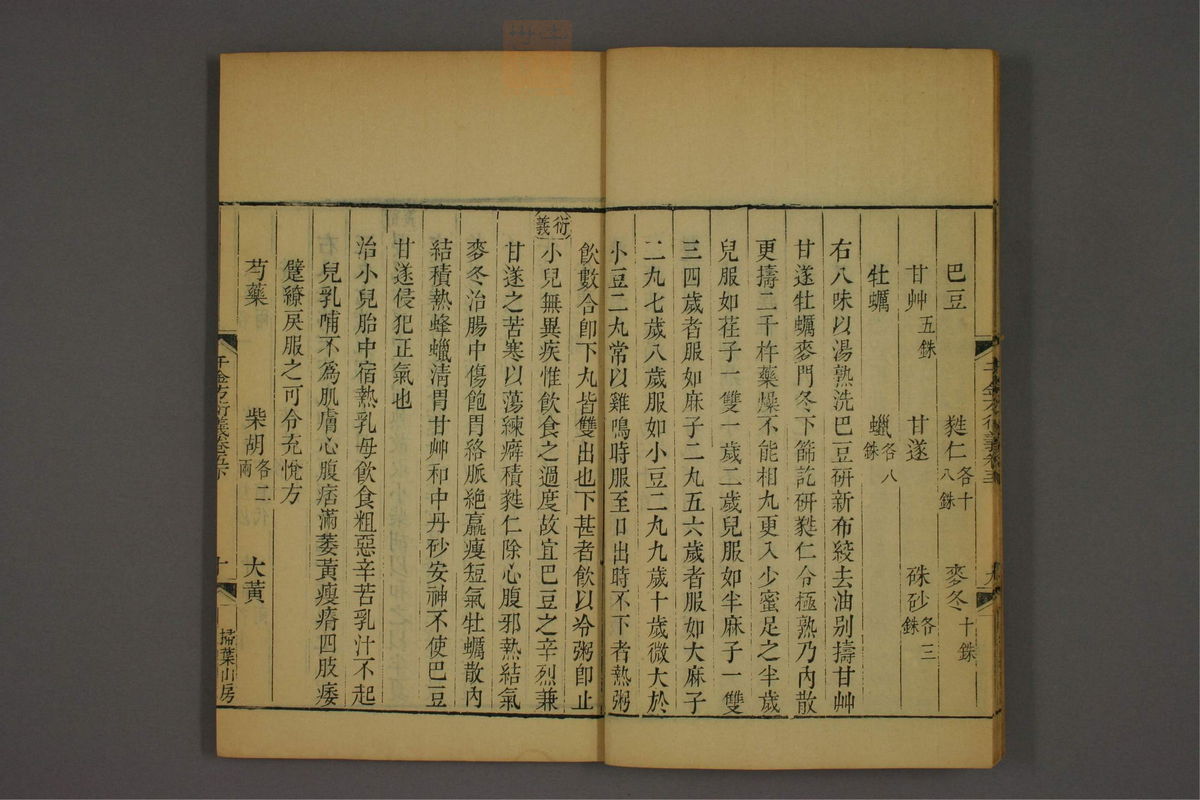 巴豆 蕤仁各十八銖 麥冬十銖
甘艸五銖 甘遂 硃砂各三銖
牡蠣 蠟各八銖
右八味以湯熟洗巴豆研新布絞去油别擣甘艸
甘遂牡蠣麥門冬下篩訖研蕤仁令極熟乃內散
更擣二千杵藥燥不能相丸更入少蜜足之半歲
兒服如荏子一雙一歲二歲兒服如半麻子一雙
三四歲者服如麻子二丸五六歲者服如大麻子
二丸七歲八歲服如小豆二丸九歲十歲微大於
小豆二丸常以雞鳴時服至日出時不下者熱粥
飲數合卽下丸皆雙出也下甚者飲以冷粥卽止
衍義
小兒無異疾惟飲食之過度故宜巴豆之辛烈兼
甘遂之苦寒以蕩練癖積蕤仁除心腹邪熱結氣
麥冬治腸中傷飽胃絡脈絶羸瘦短氣牡蠣散內
結積熱蜂蠟淸胃甘艸和中丹砂安神不使巴豆
甘遂侵犯正氣也
治小兒胎中宿熱乳母飲食粗惡辛苦乳汁不起
兒乳哺不爲肌膚心腹痞滿萎黃瘦瘠四肢痿
躄繚戾服之可令充悅方
芍藥 柴胡各二兩 大黃
千金方衍義卷五
十
掃葉山房